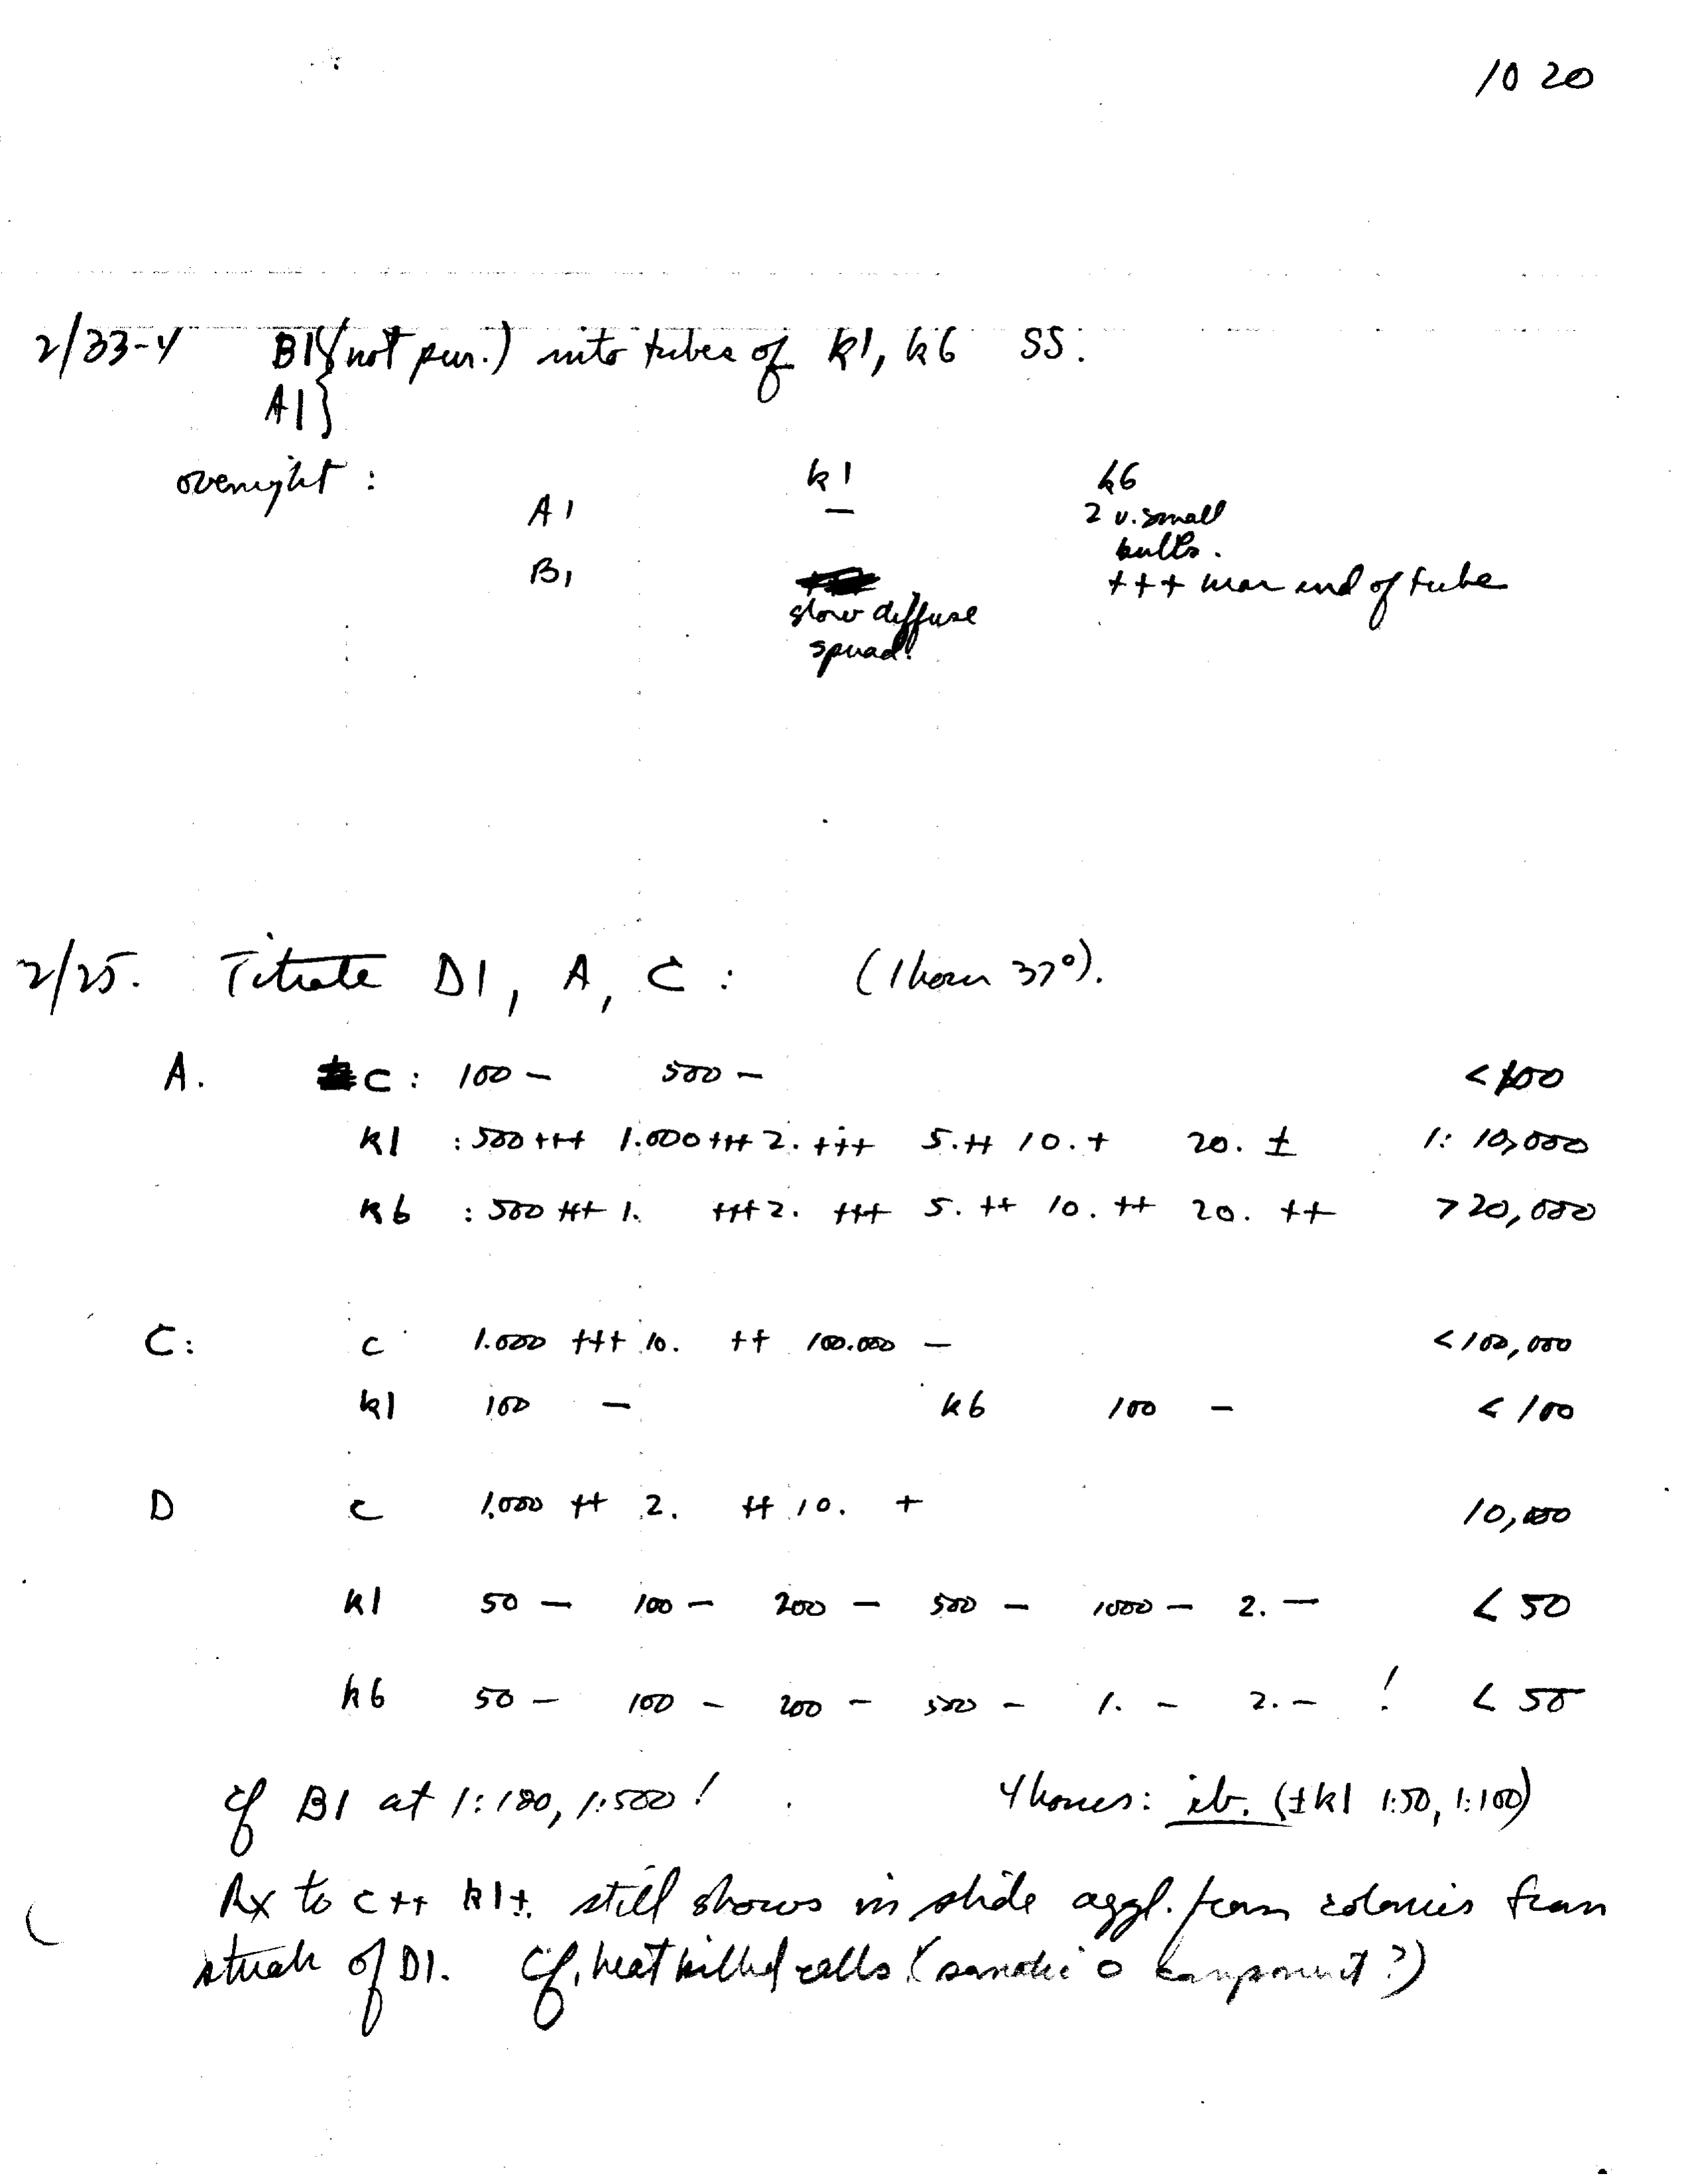 10 20
2/33-4 B1{(not pur.) into tubes of k1, k6 SS:
A1}
overnight: k1 k6
A1 — 2 v. small
bulbs.
B1 +++ near end of tube
slow diffuse
spread!
2/25. Titrate D1, A, C: (1 hour 37°).
A. C: 100 - 500 - <100
k1 : 500 +++ 1.000 +++ 2. +++ 5. ++ 10. + 20. ± 1: 10,000
k6 : 500 +++ 1. +++ 2. +++ 5. ++ 10. ++ 20. ++ >20,000
C: c 1.000 +++ 10. ++ 100.000 - <100,000
k1 100 - k6 100 - <100
D c 1,000 ++ 2. ++ 10. + 10,000
k1 50 - 100 - 200 - 500 - 1000 - 2. - <50
k6 50 - 100 - 200 - 500 - 1. - 2. - ! <50
cf B1 at 1:100, 1:500! 4 hours: ib. (±k1 1:50, 1:100)
Rx to c++ k1± still shows in slide aggl. from colonies from
streak of D1. Cf. heat killed cells (O component?)